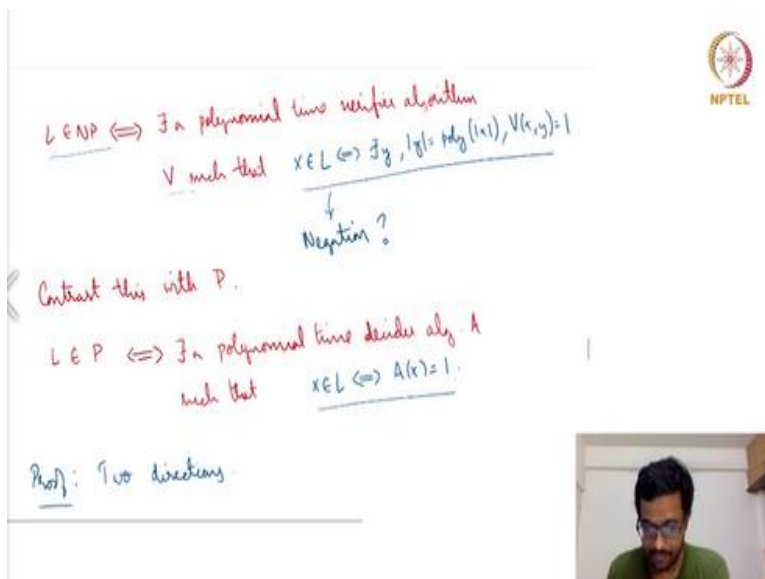 NPTEL
L ∈ NP ⟺ ∃ a polynomial time verifier algorithm
V such that x ∈ L ⟺ ∃y, |y| = poly(|x|), V(x,y)=1
↓
Negation?
Contrast this with P.
L ∈ P ⟺ ∃ a polynomial time decider alg. A
such that x ∈ L ⟺ A(x) = 1.
Proof: Two directions.